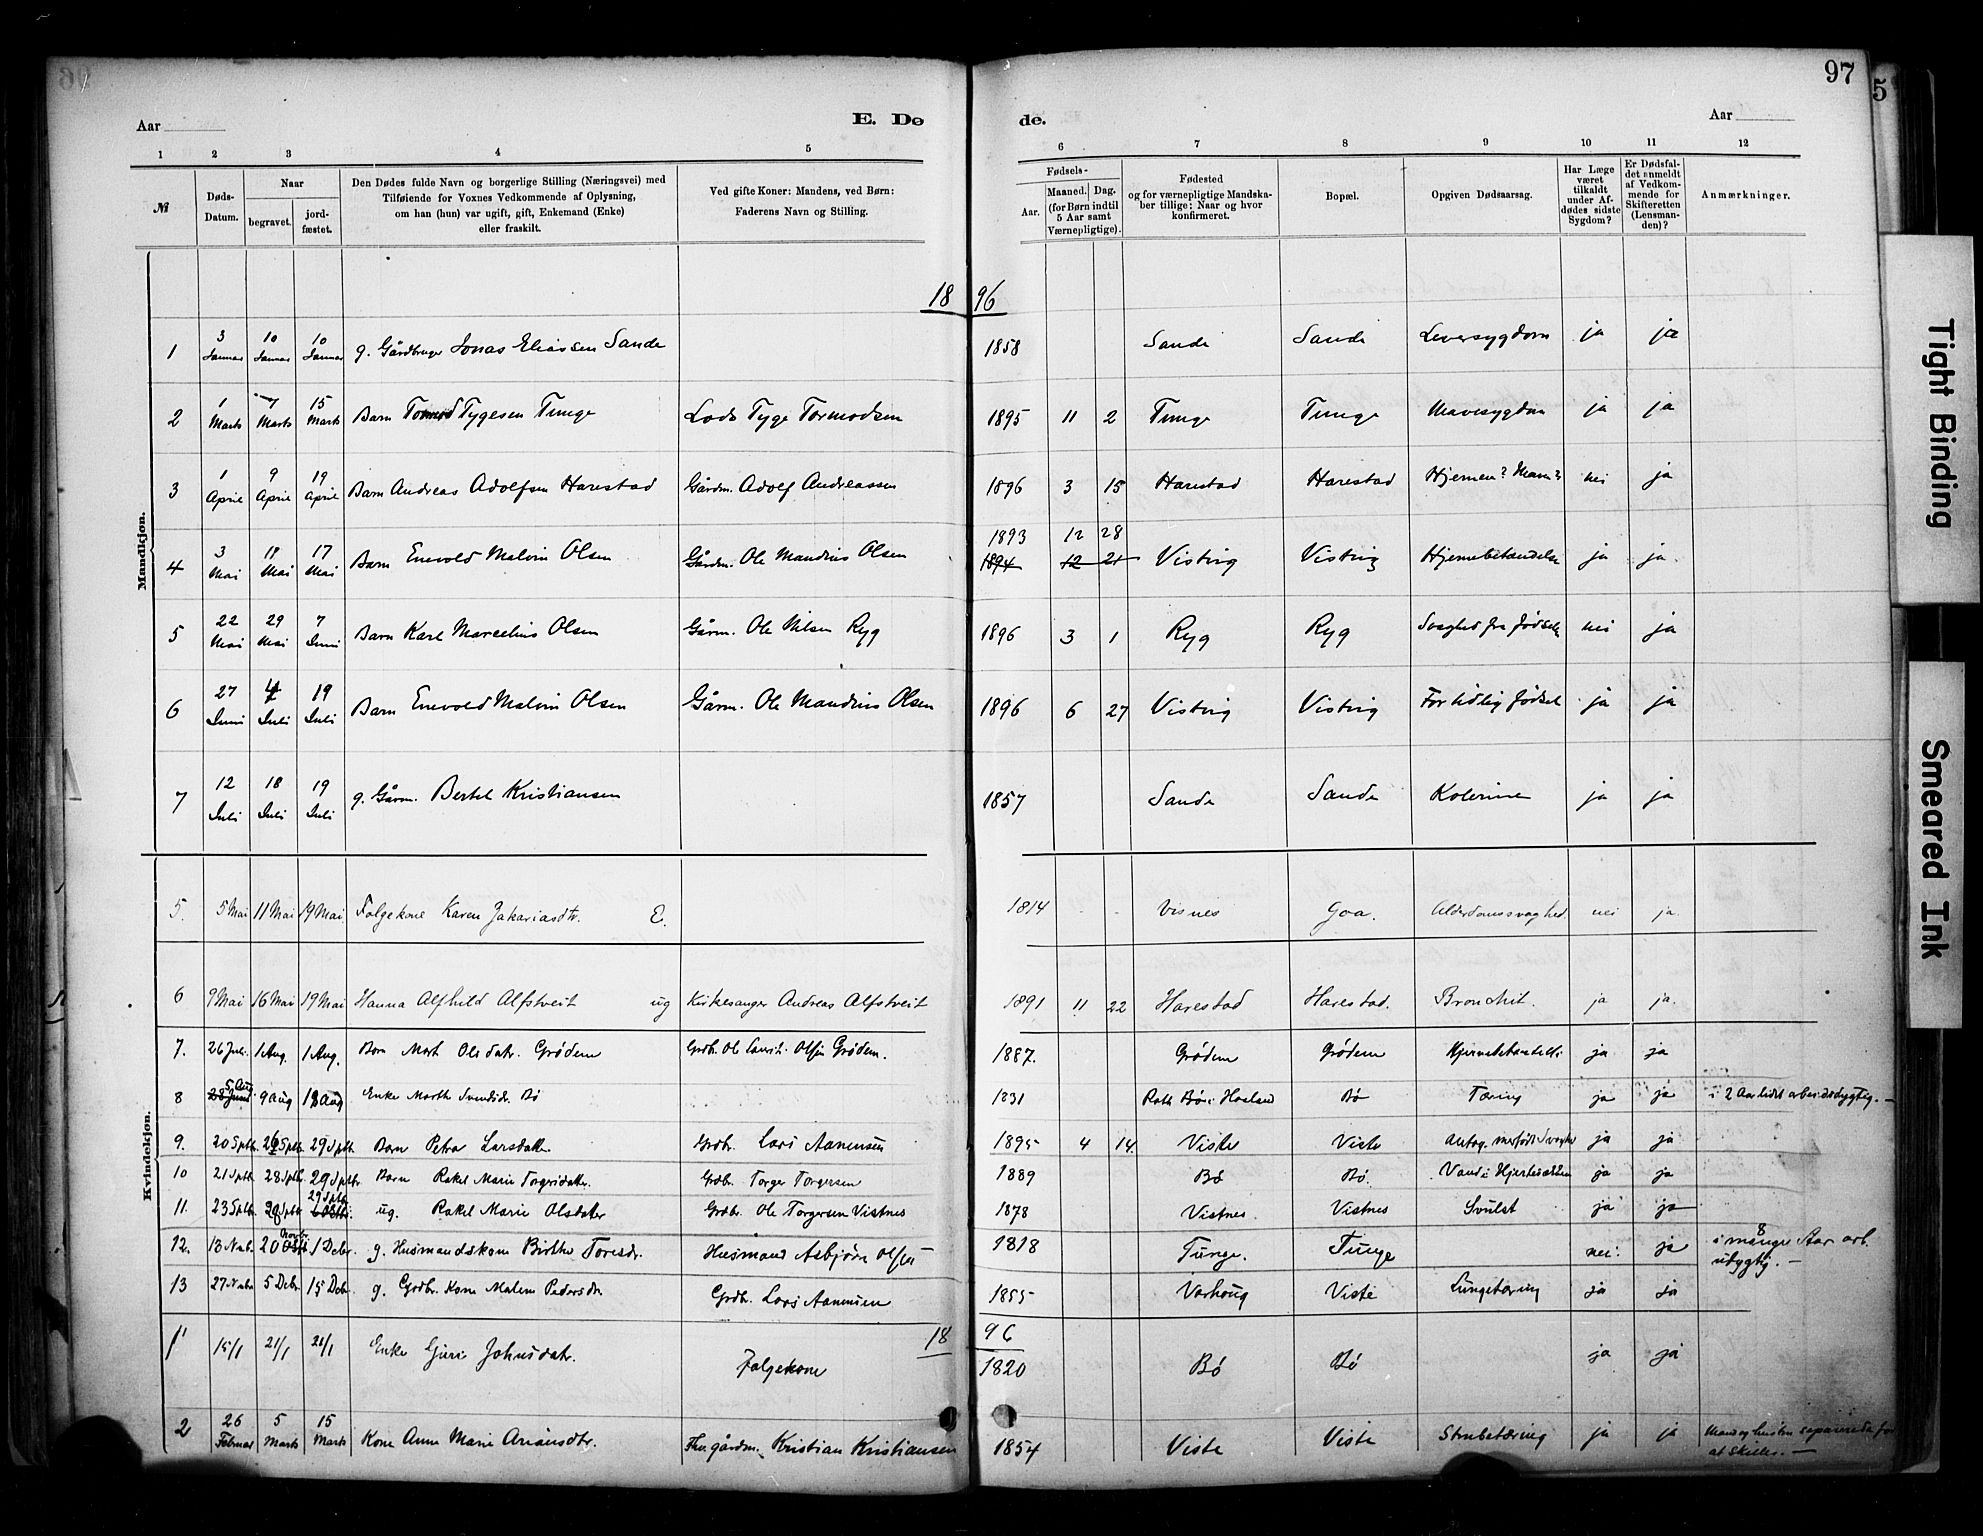 97
5
Aar
E. Dø
de.
Aar
1 2 3 4 5 6 7 8 9 10 11 12
№
Døds-Datum.
Naar
begravet.
jord-fæstet.
Den Dødes fulde Navn og borgerlige Stilling (Næringsvei) med
Tilføiende for Voxnes Vedkommende af Oplysning,
om han (hun) var ugift, gift, Enkemand (Enke)
eller fraskilt.
Ved gifte Koner: Mandens, ved Børn:
Faderens Navn og Stilling.
Fødsels-
Aar.
Maaned. Dag.
(for Børn indtil
5 Aar samt
Værnepligtige).
Fødested
og for værnepligtige Mandska-
ber tillige: Naar og hvor
konfirmeret.
Bopæl.
Opgiven Dødsaarsag.
Har Læge
været
tilkaldt
under Af-
dødes sidste
Sygdom?
Er Dødsfal-
det anmeldt
af Vedkom-
mende for
Skifteretten
(Lensman-
den)?
Anmærkninger.
Mandkjøn.
18 96
1 3 Januar 10 Januar 10 Januar g. Gårdbruger Jonas Eliassen Sande 1858 Sande Sande Leversygdom ja ja
2 1 Marts 7 Marts 15 Marts Barn Tormod Tygesen Tunge Lods Tyge Tormodsen 1895 11 2 Tunge Tunge Mavesygdom ja ja
3 1 April 9 April 19 April Barn Andreas Adolfsen Harestad Gårdm. Adolf Andreassen 1896 3 15 Harestad Harestad Hjernen? Mave? nei ja
1893 12 28
4 3 Mai 11 Mai 17 Mai Barn Enevold Malvin Olsen Gårdm. Ole Mandius Olsen 1894 12 21 Visting Visting Hjernebetændelse ja ja.
5 22 Mai 29 Mai 7 Juni Barn Karl Marcelius Olsen Gårm. Ole Nilsen Ryg 1896 3 1 Ryg Ryg Svaghed fra fødselen nei ja
6 27 Juni 4 Juli 19 Juli Barn Enevold Malvin Olsen Gårm. Ole Mandius Olsen 1896 6 27 Visting Visting For tidlig fødsel ja ja
7 12 Juli 18 Juli 19 Juli g. Gårm. Bertel Kristiansen 1857 Sande Sande Kolerine ja ja
Kvindekjøn.
5. 5 Mai 11 Mai 19 Mai Folgekone Karen Zakariasdtr. E. 1814 Visnes Goa. Alderdomssvaghed. nei ja.
6 9 Mai 16 Mai 19 Mai Hanna Alfhild Alfstveit ug Kirkesanger Andreas Alfstveit 1891 11 22 Harestad Harestad. Bronchit. ja ja.
7. 26 Juli. 1 Aug. 1 Aug. Barn Mart Olsdatr. Grødem Grdbr. Ole Laurits Olsen Grødem. 1887. Grødem Grødem ja ja
5 Aug
8 28 Juni 9 Aug 12 Aug Enke Marthe Svendsdr. Bø 1831 Bø i Haaland Bø Tæring ja ja i 2 Aar lidet arbeidsdygtig. —
9. 20 Sptb. 26 Sptb. 29 Sptb. Barn Petra Larsdatter Grdbr. Lars Aanensen 1895 4 14. Viste Viste Antag. medfødt Svaghed ja ja
10 21 Sptb. 28 Sptb. 29 Sptbr. Barn Rakel Marie Torgersdatter. Grdbr. Torger Torgersen 1889 Bø Bø. Vand i Hjertesækken ja ja
29 Sptb.
11. 23 Sptb. 28 Sptb. ug. Rakel Marie Olsdater Grdbr. Ole Torgersen Vistnes 1878 Vistnes. Vistnes Svulst ja ja
12. 13 Novb. 20 Novbr. 1 Debr. g. Husmandskone Birthe Toresdr. Husmand Asbjørn Olsen 1818 Tunge. Tunge nei. ja i mange 8 Aar arb.
udygtig. —
13 27 Novbr 5 Debr. 15 Debr. g. Grdbr. Kone Malene Pedersdr. Grdb. Lars Aanensen 1855 Varhoug Viste Lungetæring ja ja
18 96
1 15/1 21/1 21/1 Enke Guri Johnsdatr. Folgekone 1820 Bø Bø ja ja
2 26 Februar 5 Marts 15 Marts Kone Anne Marie Ariansdtr. Fhv. gårdm. Kristian Kristiansen 1854 Viste Viste Strubetæring ja ja Mand og hustru separerede for
at skilles. —
Tight Binding
Smeared Ink